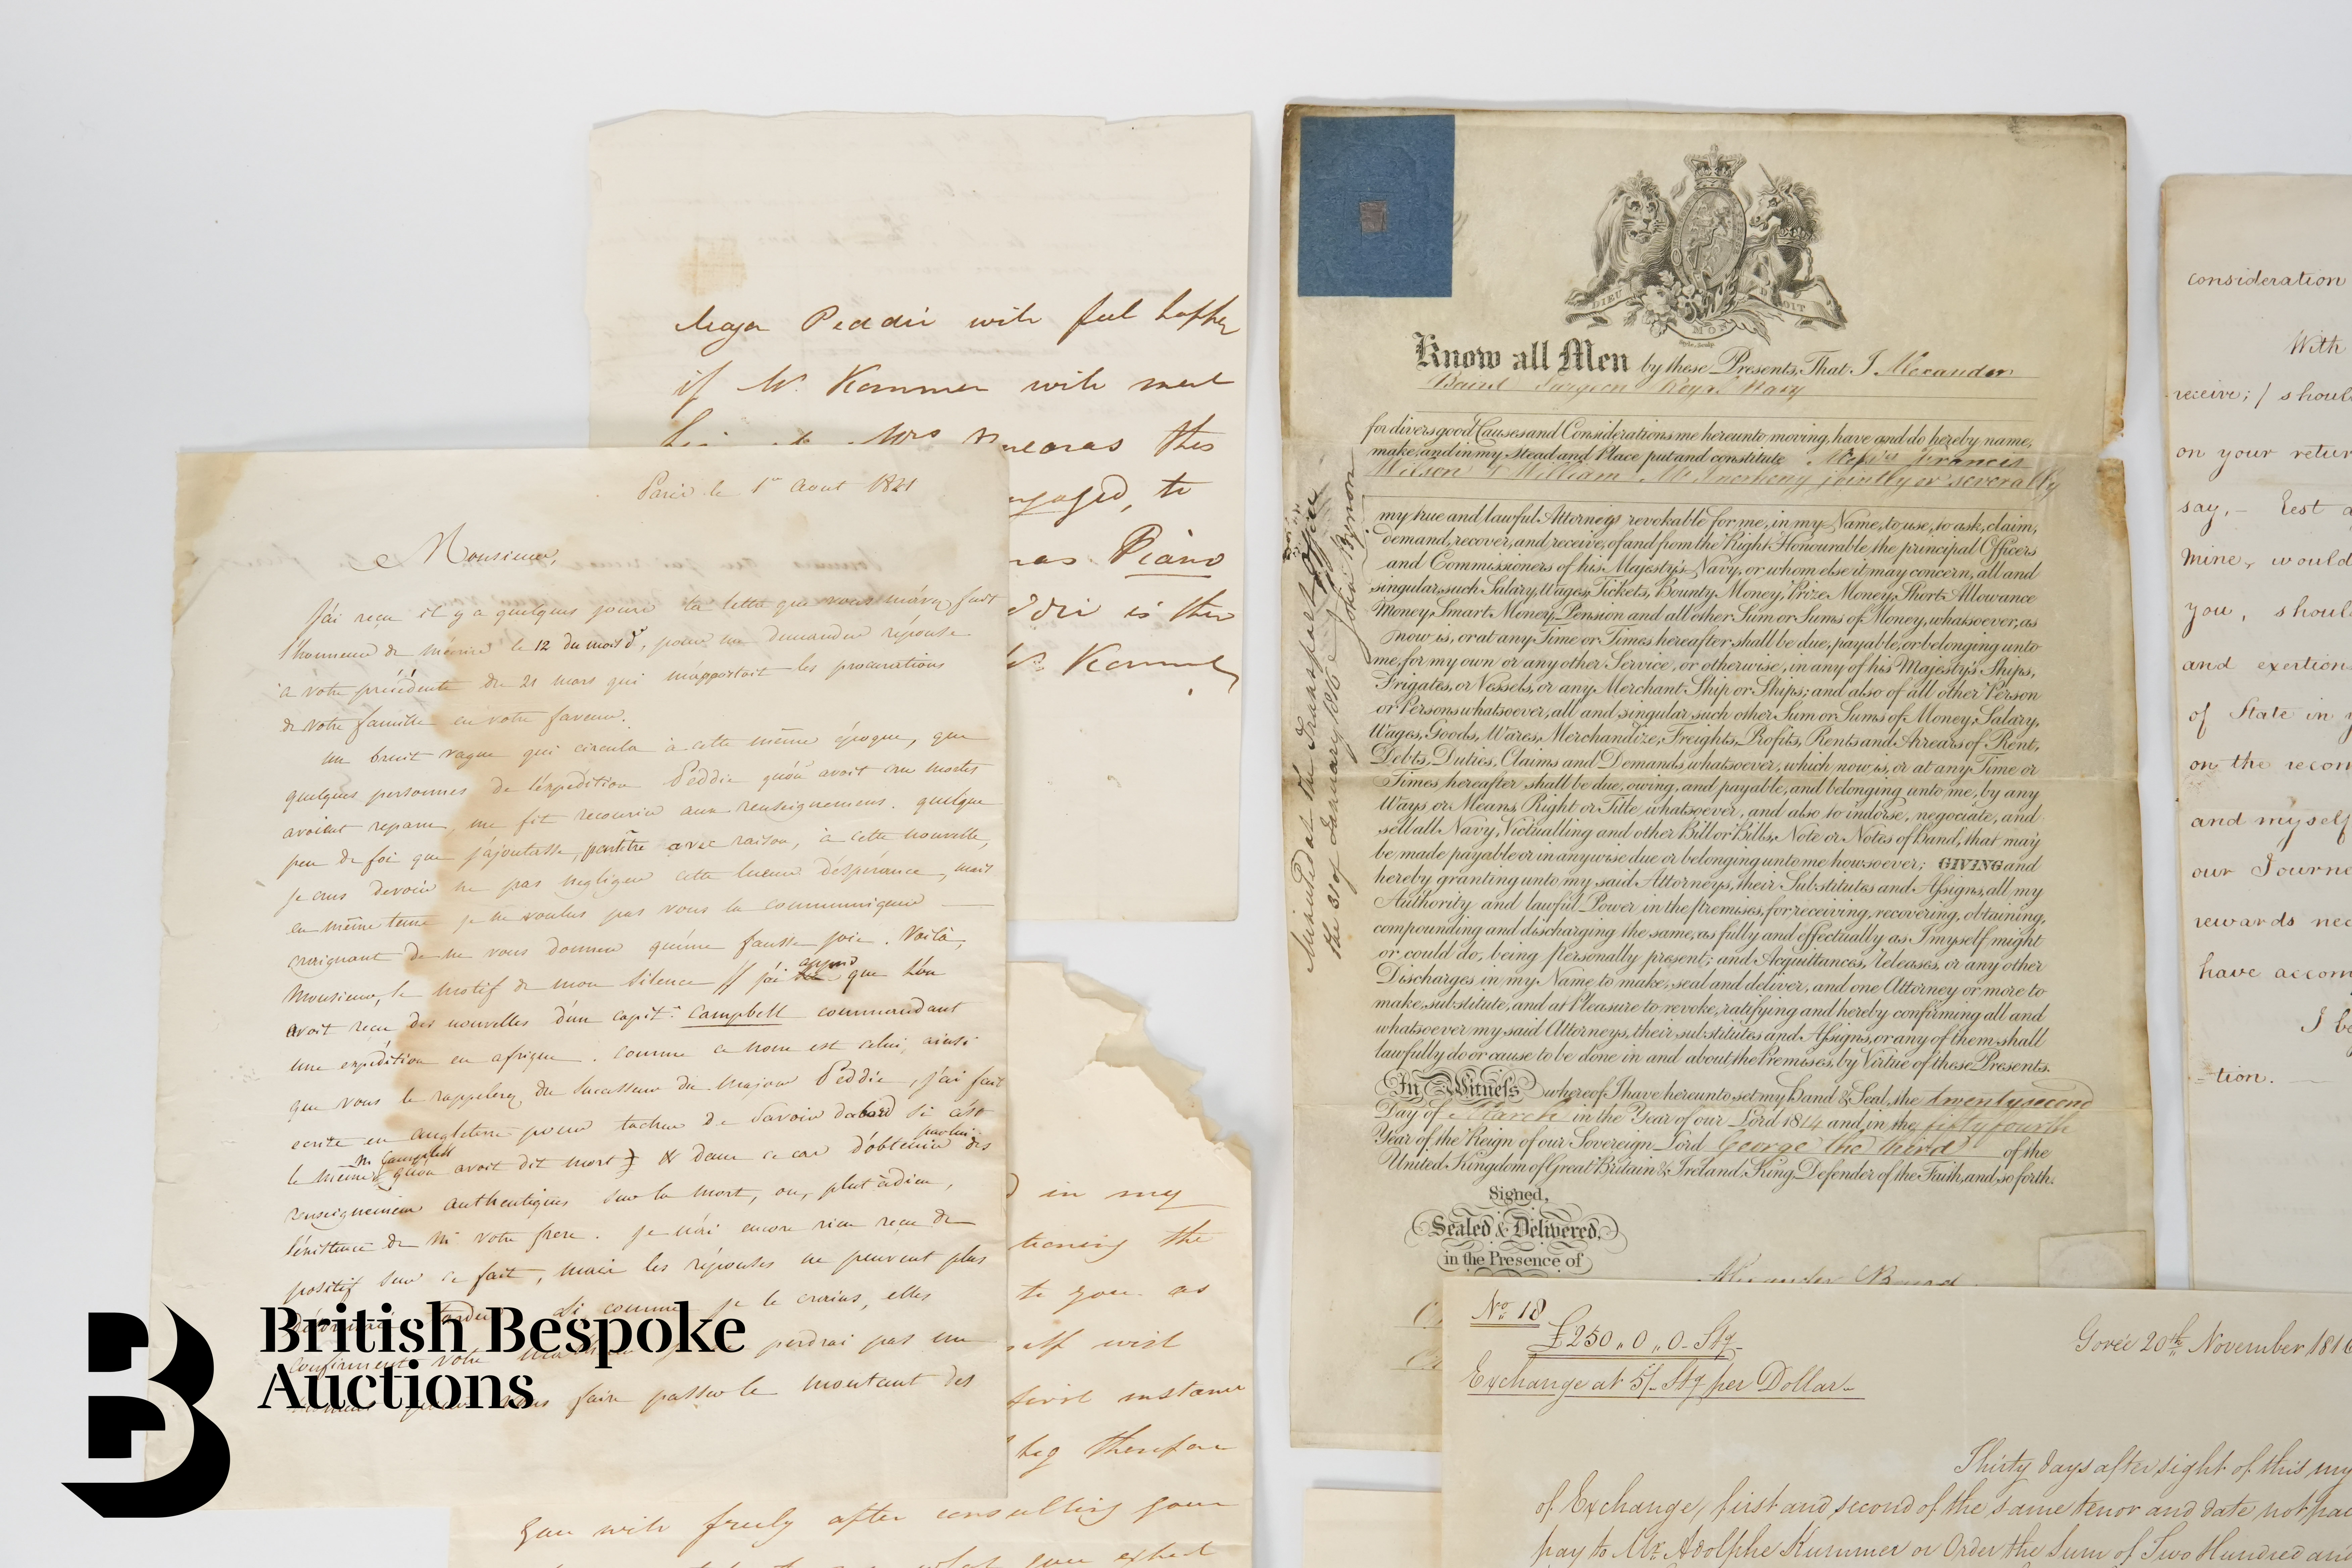 Major Peddie will feel happy
if Mr. Kummer will meet
Mrs this
engaged, to
Piano
is the
Kummer
Paris le 1er Aout 1821
Monsieur,
J'ai reçu il y a quelques jours la lettre que vous m'avez fait
l'honneur de m'écrire le 12 du mois dr, pour me demander réponse
à votre précédente du 21 mars qui m'apportait les procurations
de votre famille en votre faveur.
un bruit vague qui circula à cette même époque, que
quelques personnes de l'expédition Peddie qu'on avoit cru mortes
avoient reparu, me fit recourir aux renseignemens. quelque
peu de foi que j'ajoutasse, peutêtre avec raison, à cette nouvelle,
je crus devoir ne pas negliger cette lueur d'espérance, mais
en même tems je ne voulus pas vous la communiquer
craignant de ne vous donner qu'une fausse joie. Voilà,
Monsieur, le motif de mon silence j'ai appris que l'on
avoit reçu des nouvelles d'un capit. Campbell commandant
une expédition en afrique. comme ce nom est celui, ainsi
que vous le rappelerez, du successeur du Major Peddie, j'ai fait
ecrire en angleterre pour tacher de savoir dabord si c'est
le même M. Campbell qu'on avoit dit mort & dans ce cas d'obtenir par lui des
renseignemens authentiques sur la mort, ou, plut àdieu,
l'existence de M. votre frere. je n'ai encore rien reçu de
positif sur ce fait, mais les réponses ne peuvent plus
tarder. Si comme je le crains, elles
confirment votre perdrai pas un
vous faire passer le montant des
in my
the
to you as
self wish
first instance
beg therefore
You will freely after consulting your
what you expect
DIEU ET MON DROIT
Know all Men by these Presents, That I Alexander
Baird Surgeon Royal Navy
for divers good Causes and Considerations me hereunto moving, have and do hereby name,
make, and in my stead and Place put and constitute Messrs Francis
Wilson & William McInerheny jointly or severally
my true and lawful Attorneys revokable for me, in my Name, to use, to ask, claim,
demand, recover, and receive, of and from the Right Honourable the principal Officers
and Commissioners of his Majesty's Navy, or whom else it may concern, all and
singular, such Salary, Wages, Tickets, Bounty Money, Prize Money, Short Allowance
Money, Smart Money, Pension and all other Sum or Sums of Money, whatsoever, as
now is, or at any Time or Times hereafter shall be due, payable, or belonging unto
me, for my own or any other Service, or otherwise, in any of his Majesty's Ships,
Frigates, or Vessels, or any Merchant Ship or Ships; and also of all other Person
or Persons whatsoever, all and singular such other Sum or Sums of Money, Salary,
Wages, Goods, Wares, Merchandize, Freights, Profits, Rents and Arrears of Rent,
Debts, Duties, Claims and Demands, whatsoever, which now is, or at any Time or
Times, hereafter shall be due, owing, and payable, and belonging unto me, by any
Ways or Means, Right or Title whatsoever, and also to indorse, negociate, and
sell all Navy, Victualling and other Bill or Bills, Note or Notes of Hand, that may
be made payable or in anywise due or belonging unto me howsoever; GIVING and
hereby granting unto my said Attorneys, their Substitutes and Assigns, all my
Authority and lawful Power in the Premises, for receiving, recovering, obtaining,
compounding and discharging the same, as fully and effectually as I myself might
or could do, being Personally present; and Acquittances, Releases, or any other
Discharges in my Name to make, seal and deliver, and one Attorney or more to
make, substitute, and at Pleasure to revoke, ratifying and hereby confirming all and
whatsoever my said Attorneys, their substitutes and Assigns, or any of them shall
lawfully do or cause to be done in and about the Premises, by Virtue of these Presents.
In Witness whereof I have hereunto set my Hand & Seal, the twenty second
Day of March in the Year of our Lord 1814 and in the fifty fourth
Year of the Reign of our Sovereign Lord George the third of the
United Kingdom of Great Britain & Ireland, King, Defender of the Faith, and so forth.
Signed,
Sealed & Delivered,
in the Presence of
Alexander Baird
Minuted at the Transport Office
the 31 of January 1816
John Bynon
No 18
£250,,0,,0- Stg-
Exchange at 5/- Stg per Dollar-
Gorée 20th November 1816
Thirty days after sight of this my
of Exchange, first and second of the same tenor and date not pai
pay to Mr Adolphe Kummer or Order the Sum of Two Hundred an
consideration
With
receive; I shoul
on your retur
say, - Lest a
mine, would
you, shoul
and exertion
of State in y
on the recom
and myself
our Journe
rewards nec
have accom
I be
-tion.
British Bespoke
Auctions